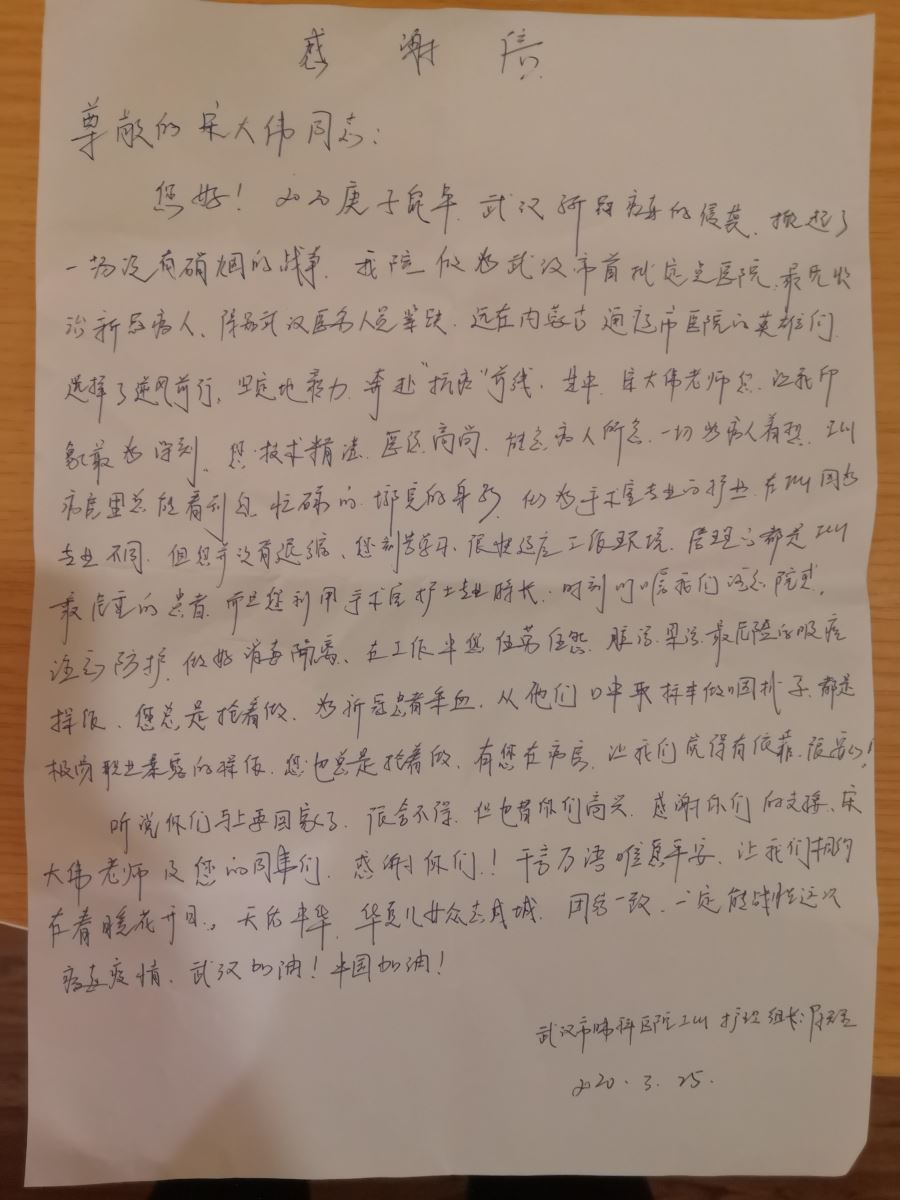 感谢信
尊敬的宋大伟同志：
您好！2020庚子鼠年，武汉新冠病毒的侵袭，掀起了
一场没有硝烟的战事，我院做为武汉市首批定点医院，最先收
治新冠病人、随着武汉医务人员紧缺，远在内蒙古通辽市医院的英雄们，
选择了逆风前行，坚定地最力，奔赴“抗疫”前线，其中，宋大伟老师您，让我印
象最为深刻，您技术精湛，医德高尚，能急病人所急，一切为病人着想，ICU
病房里总能看到您忙碌的身影，做为手术室专业的护士，在ICU因为
专业不同，但您并没有退缩，您刻苦学习，很快适应工作环境，管理的都是ICU
最危重的患者，而且您利用手术室护士专业特长，时刻叮嘱我们注意院感，
注意防护，做好消毒隔离，在工作中您任劳任怨，脏活累活最危险的吸痰
操作，您总是抢着做，为新冠患者采血，从他们口中取标本做咽拭子，都是
极易职业暴露的操作，您也总是抢着做，有您在病房，让我们觉得有依靠，很安心！
听说你们马上要回家了，很舍不得，但也替你们高兴，感谢你们的支援，宋
大伟老师及您的同事们，感谢你们！千言万语唯愿平安，让我们相约
在春暖花开日。天佑中华，华夏儿女众志成城，团结一致，一定能战胜这次
病毒疫情，武汉加油！中国加油！
武汉市肺科医院ICU护理组长：
2020.3.25.